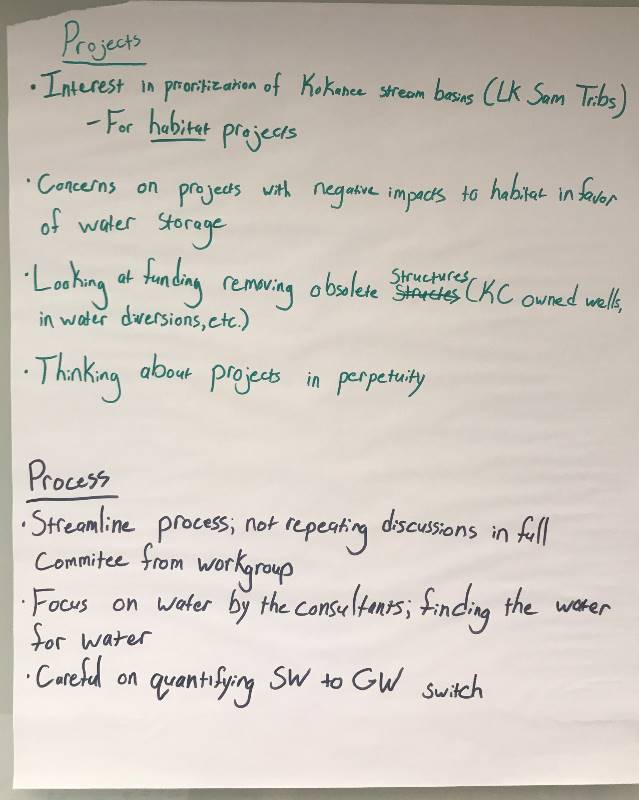 Projects
• Interest in prioritization of Kokanee stream basins (LK Sam Tribs)
– For habitat projects
• Concerns on projects with negative impacts to habitat in favor
of water storage
• Looking at funding removing obsolete Structures Structes (KC owned wells,
in water diversions, etc.)
• Thinking about projects in perpetuity
Process
• Streamline process; not repeating discussions in full
Commitee from workgroup
• Focus on water by the consultants; finding the water
for water
• Careful on quantifying SW to GW switch